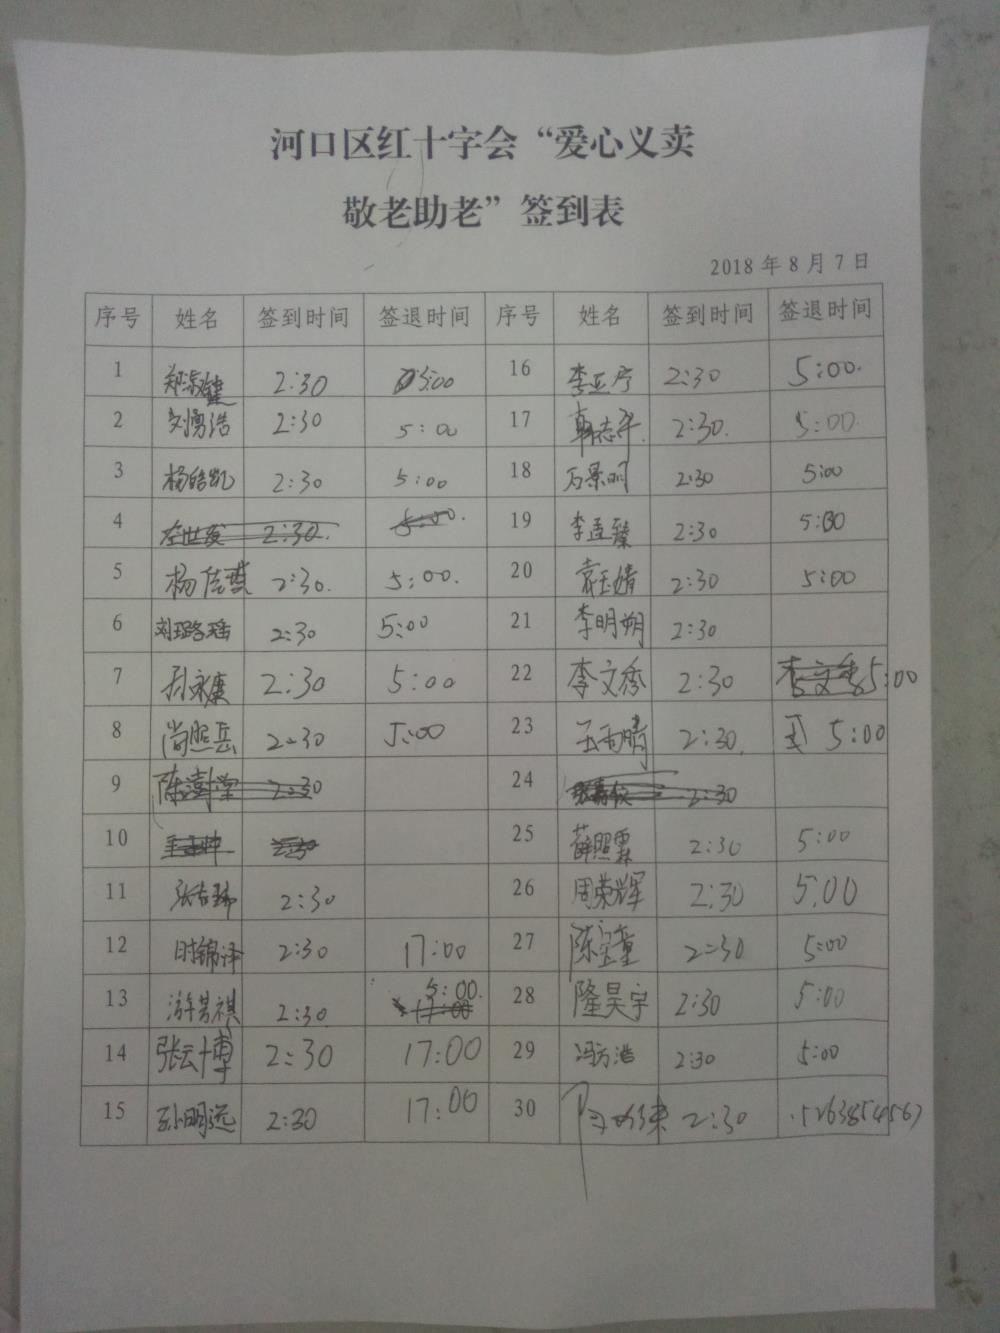 河口区红十字会“爱心义卖
敬老助老”签到表
2018年8月7日
序号 姓名 签到时间 签退时间 序号 姓名 签到时间 签退时间
1 郑淑健 2:30 5:00 16 李正宁 2:30 5:00.
2 刘勇浩 2:30 5:00 17 韩志平. 2:30. 5:00.
3 杨皓凯 2:30 5:00 18 石景明 2:30 5:00
4 左世发 2:30. 5:00. 19 李孟臻 2:30 5:00
5 杨信哲 2:30. 5:00. 20 袁玉婧 2:30 5:00
6 刘璐瑶 2:30 5:00 21 李明朔 2:30
7 孙永康 2:30 5:00 22 李文秀 2:30 李文秀 5:00
8 尚照岳 2:30 5:00 23 王雨晴 2:30. 王 5:00
9 陈澍荣 2:30 24 2:30
10 2:30 25 薛照霖 2:30 5:00
11 2:30 26 周荣辉 2:30 5:00
12 时锦译 2:30 17:00 27 陈宝童 2:30 5:00
13 游芳祺 2:30 5:00. 17:00 28 隆昊宇 2:30 5:00
14 张云博 2:30 17:00 29 冯方浩 2:30 5:00
15 孙明远 2:30 17:00 30 2:30